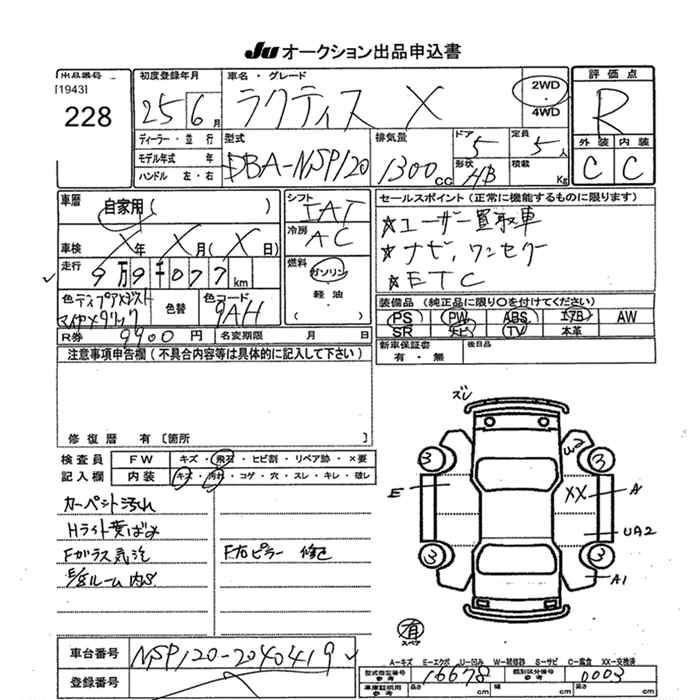 JU オークション出品申込書
出品番号
[1943]
228
初度登録年月
25 6月
車名・グレード
ラクティス X
2WD
4WD
評価点
R
外装 内装
C C
ディーラー・並行
モデル年式 年
ハンドル 左・右
型式
DBA-NSP120
排気量
1300cc
ドア 5
形状 HB
定員 5人
積載 Kg
車歴
自家用( )
車検 X年 X月(X日)
走行 9万9千077km
シフト
IAT
冷房
AC
燃料
ガソリン
軽油
( )
セールスポイント(正常に機能するものに限ります)
☆ユーザー買取車
☆ナビ,ワンセグ
☆ETC
色
マイカメタリック
色替
色コード
9AH
装備品(純正品に限り○を付けてください)
PS PW ABS エアB AW
SR ナビ TV 本革
R券 9900円
名変期限 月 日
新車保証書
有・無
後日品
注意事項申告欄(不具合内容等は具体的に記入して下さい)
修復歴 有〔箇所 〕
検査員
記入欄
FW キズ・飛石・ヒビ割・リペア跡・×要
内装 キズ・汚れ・コゲ・穴・スレ・キレ・破レ
カーペット汚れ
Hライト黄ばみ
Fガラス気泡
F右ピラー 修正
ズレ
W2
3 3
E
XX
A
UA2
3 3
A1
有
スペア
A-キズ E-エクボ U-凹み W-補修跡 S-サビ C-腐食 XX-交換済
車台番号
NSP120-2040419
登録番号
型式指定番号
参考
16678
類別区分番号
参考
0003
車庫証明用
参考
長さ cm
幅 cm
高さ cm